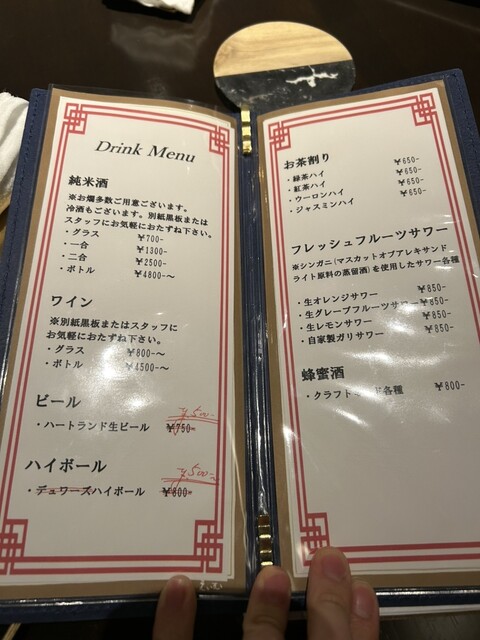 Drink Menu
純米酒
※お燗多数ご用意ございます。
冷酒もございます。別紙黒板または
スタッフにお気軽におたずね下さい。
・グラス ¥700-
・一合 ¥1300-
・二合 ¥2500-
・ボトル ¥4800-～
ワイン
※別紙黒板またはスタッフに
お気軽におたずね下さい。
・グラス ¥800-～
・ボトル ¥4500-～
ビール
¥500-
・ハートランド生ビール ¥750-
ハイボール
¥500-
・デュワーズハイボール ¥800-
お茶割り
・緑茶ハイ ¥650-
・紅茶ハイ ¥650-
・ウーロンハイ ¥650-
・ジャスミンハイ ¥650-
フレッシュフルーツサワー
※シンガニ(マスカットオブアレキサンド
ライト原料の蒸留酒)を使用したサワー各種
・生オレンジサワー ¥850-
・生グレープフルーツサワー ¥850-
・生レモンサワー ¥850-
・自家製ガリサワー ¥850-
蜂蜜酒
・クラフト ド各種 ¥800-